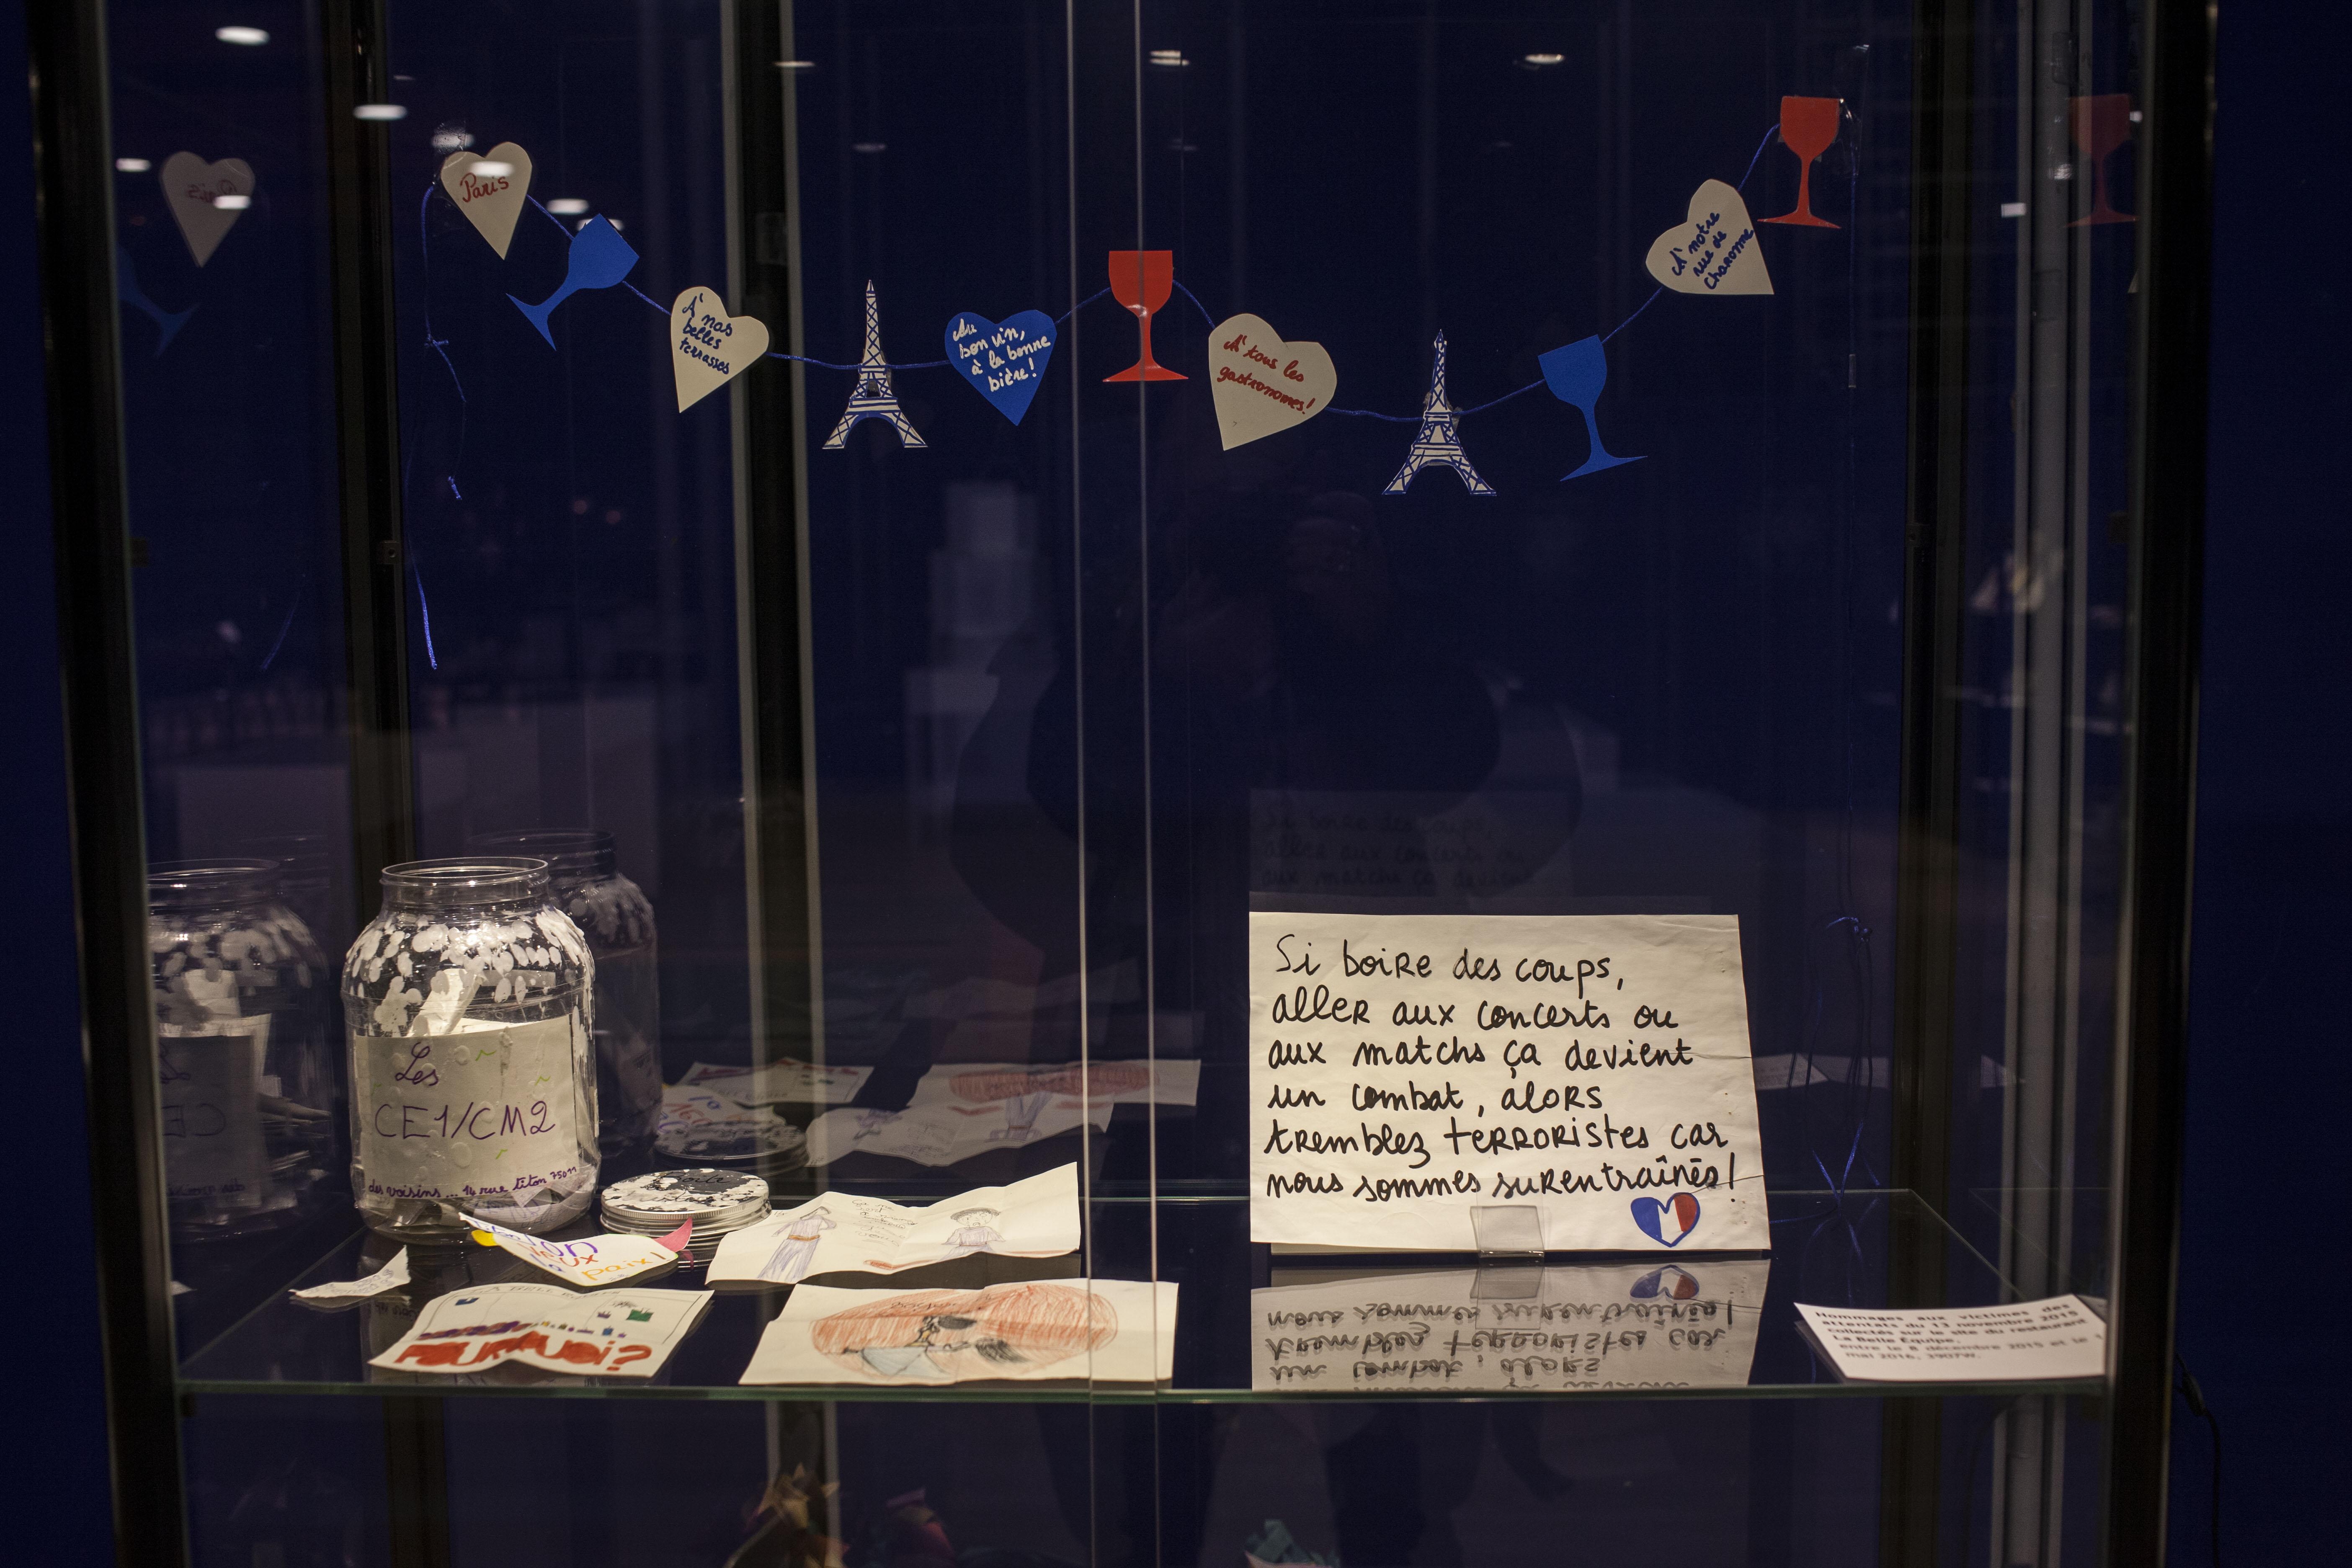 Paris
A' nos
belles
terrasses
Au
bon vin,
à la bonne
bière!
A' tous les
gastronomes!
A' notre
rue de
Charonne
Si boire des coups,
aller aux concerts ou
aux matchs ça devient
un combat, alors
tremblez terroristes car
nous sommes surentraînés!
Les
CE1/CM2
des voisins... 14 rue titon 75011
paix!
POURQUOI?
Hommages aux victimes des
attentats du 13 novembre 2015
collectés sur le site du restaurant
La Belle Équipe,
entre le 8 décembre 2015 et le 1
mai 2016, 3907W.